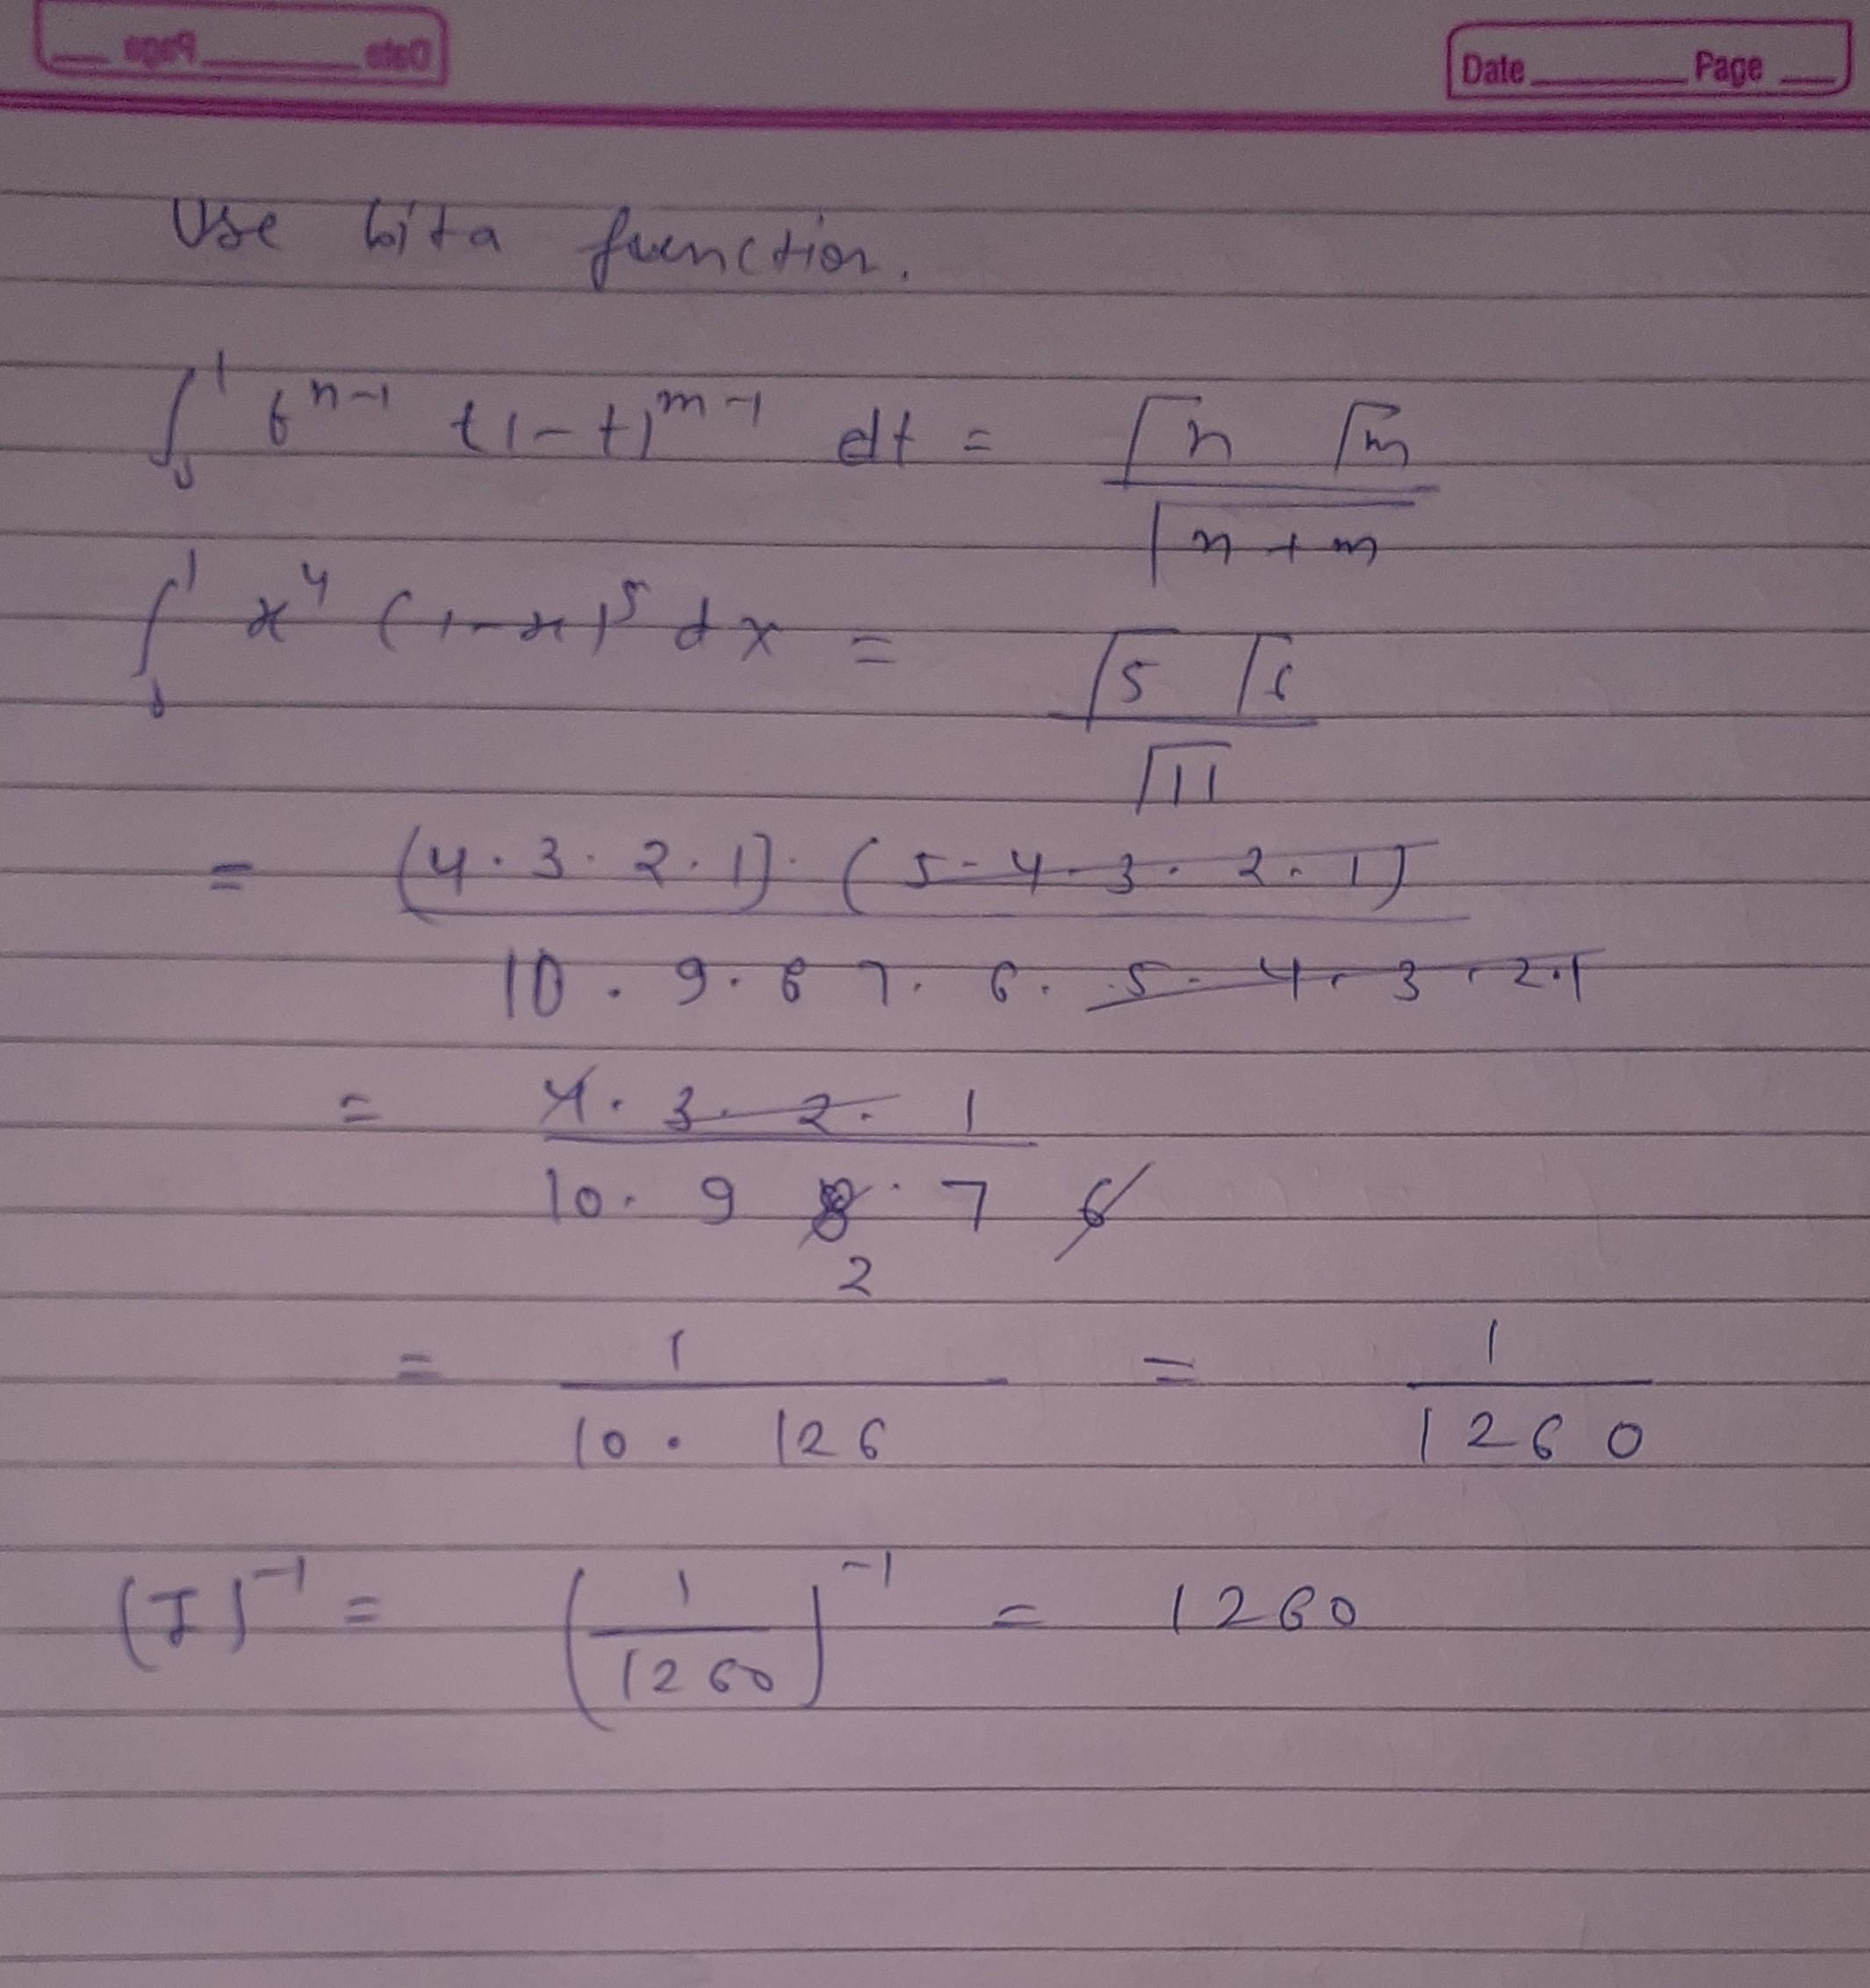 Date Page
Use bita function.
∫₀¹ t^(n-1) (1-t)^(m-1) dt = Γn Γm / Γn+m
∫₀¹ x⁴ (1-x)⁵ dx = Γ5 Γ6 / Γ11
= (4·3·2·1)·(5·4·3·2·1) / 10·9·8 7·6·5·4·3·2·1
= 4·3·2·1 / 10·9 8·7 6
2
= 1 / 10·126 = 1 / 1260
(I)⁻¹ = (1/1260)⁻¹ = 1260